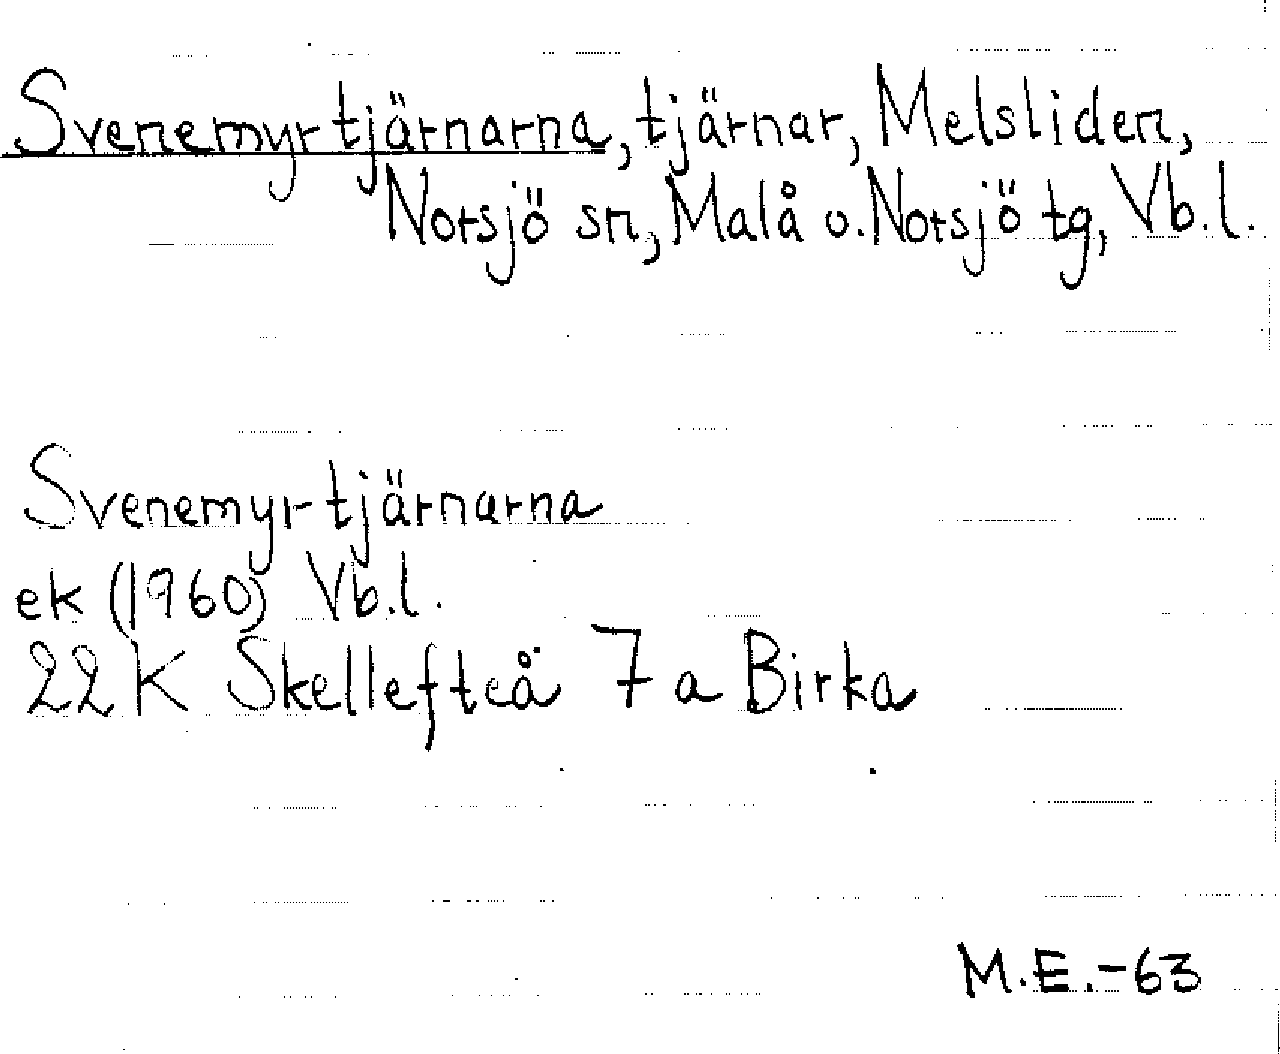 Svenemyrtjärnarna, tjärnar, Melsliden,
Norsjö sn, Malå o. Norsjö tg, Vb.l.
Svenemyrtjärnarna
ek (1960) Vb.l.
22 K Skellefteå 7 a Birka
M.E.-63